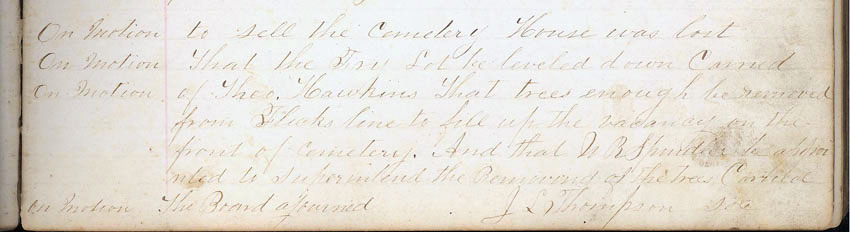 On Motion to sell the Cemetery House was lost
On Motion That the Try Lot be leveled down Carried
On Motion of Theo, Hawkins That trees enough be removed
from Flicks line to fill up the vacancy on the
front of Cemetery. And that W R be appoi
nted to superintend the Removeing of the trees Carried
On Motion The Board ajourned J L Thompson Sec